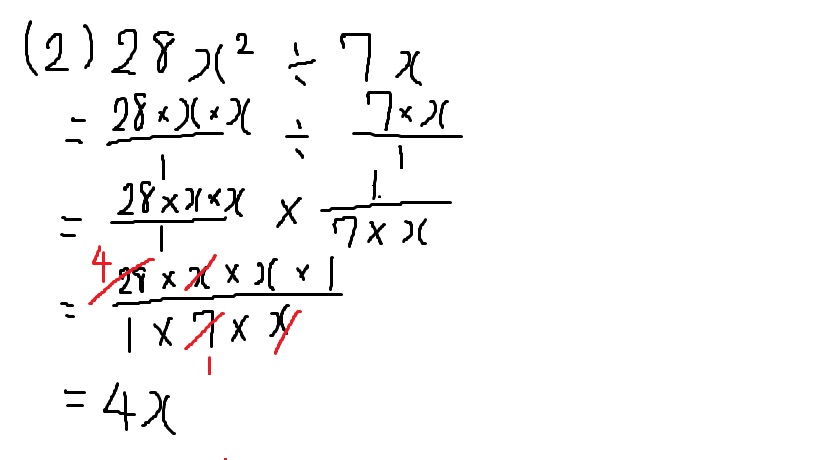 (2) 28x² ÷ 7x
= 28×x×x/1 ÷ 7×x/1
= 28×x×x/1 × 1/7×x
4
= 28×x×x×1/1×7×x
1
= 4x